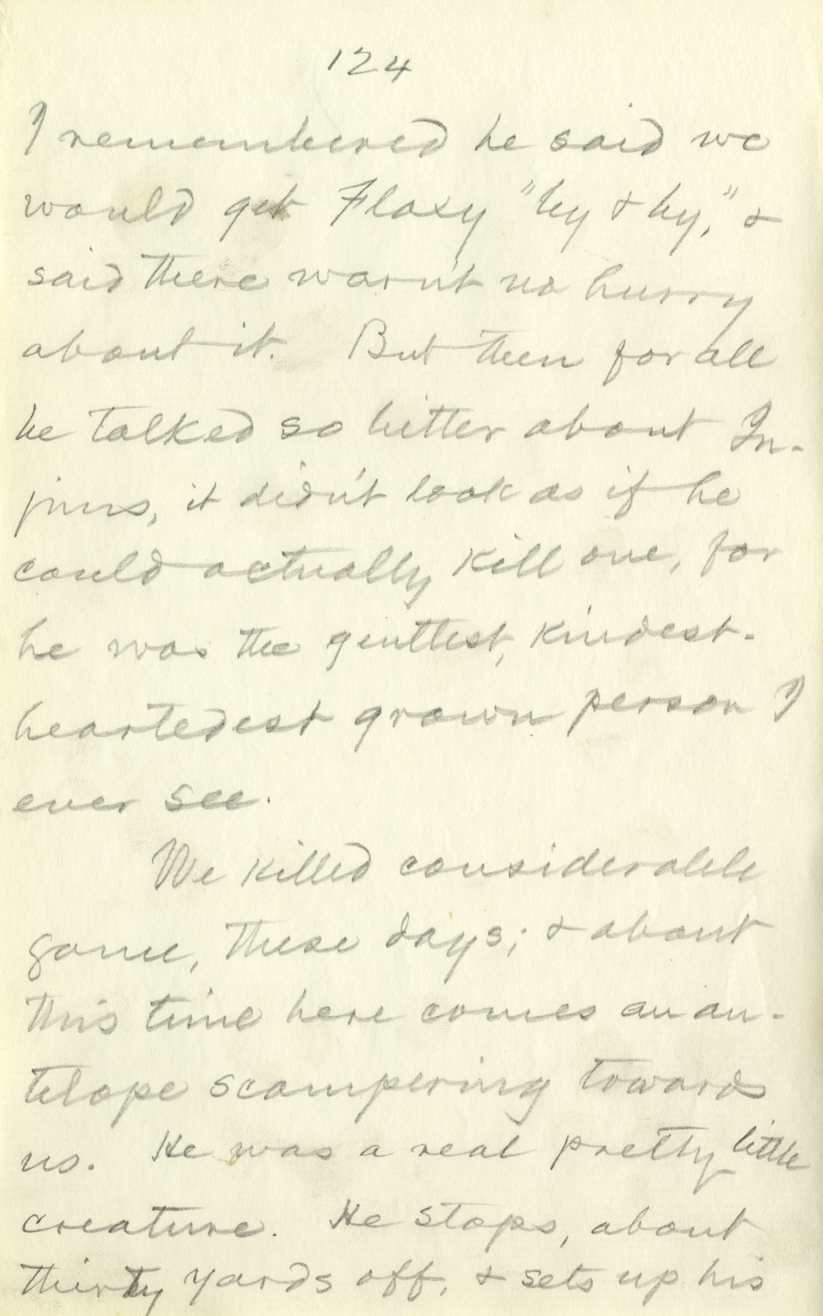 124
I remembered he said we
would get Flaxy "by & by," &
said there warn't no hurry
about it. But then for all
he talked so bitter about In-
juns, it didn't look as if he
could actually kill one, for
he was the gentlest, kindest-
heartedest grown person I
ever see.
We killed considerable
game, these days; & about
this time here comes an an-
telope scampering towards
us. He was a real pretty little
creature. He stops, about
thirty yards off, & sets up his